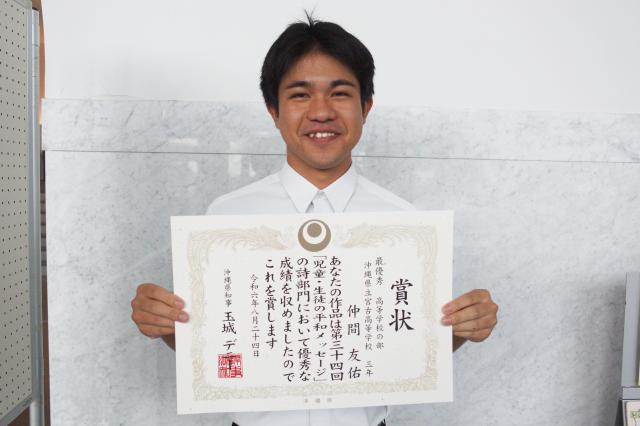 賞状
最優秀 高等学校の部
沖縄県立宮古高等学校 三年
仲間 友佑
あなたの作品は第三十四回
「児童・生徒の平和メッセージ」
の詩部門において優秀な
成績を収めましたので
これを賞します
令和六年八月二十四日
沖縄県知事 玉城 デニー